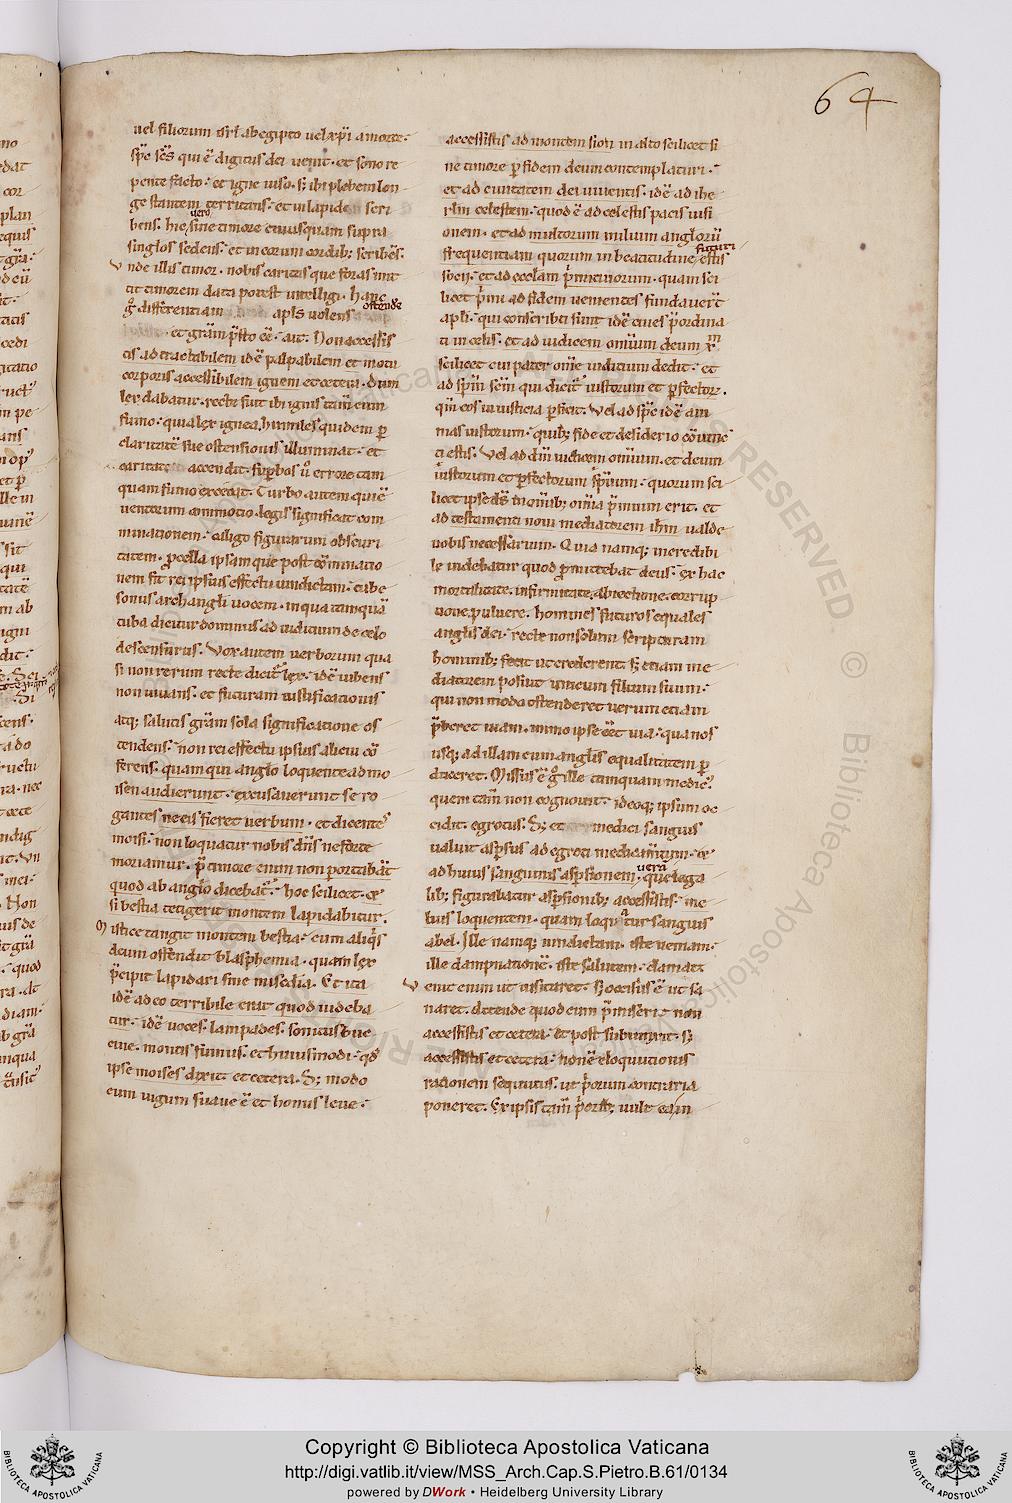 64
uel filiorum isrl ab egipto uel xp̄i a morte.
sp̄c sc̄s qui ē digitus dei uenit. et sono re
pente facto. et igne uiso. sȝ ibi plebem lon
ge stantem territans. et in lapide scri
bens. hic uero sine timore cuiusquam supra
singl̄os sedens. et in eorum cordibȝ scribēs.
vnde illis timor. nobis caritas que foras mit
tit timorem dari potest intelligi. hanc
g̊ differentiam apl̄s uolens ostende
. et grām p̄sto eē. ait. Non accessis
tis ad tractabilem idē palpabilem et motu
corporis accessibilem ignem et cetera. dum
lex dabatur. recte fuit ibi ignis tam̄ cum
fumo. quia lex ignea. humiles quidem p
claritatē sue ostensionis illuminat. et
caritate accendit. sup̄bos ū errore tam
quam fumo excecat. Turbo autem qui ē
uentorum commotio. legis significat com
minationem. caligo figurarum obscuri
tatem. procella ipsam que post cōminatio
nem fit rei ipsius effectu uindictam. tube
sonus archangl̄i uocem. in qua tamquā
tuba dicitur dominus ad iudicium de celo
descensurus. Vox autem uerborum qua
si non rerum recte dicit̄ lex. idē iubens
non iuuans. et futuram iustificationis
atqȝ salutis grām sola significatione os
tendens. non rei effectu ipsius alicui cō
ferens. quam qui anglo loquente ad mo
isen audierunt. excusauerunt se ro
gantes ne eis fieret uerbum. et dicentes
moisi. non loquatur nobis dn̄s ne forte
moriamur. p̄ timore enim non portabāt
quod ab anglo dicebat̄. hoc scilicet. et
si bestia tetigerit montem lapidabitur.
Mistice tangit montem bestia. cum aliq̄s
deum offendit blasphemia. quam lex
p̄cipit lapidari sine misc̄dia. Et ita
idē adeo terribile erat quod uideba
tur. idē uoces. lampades. sonitus buc
cine. montis fumus. et huiusmodi. qd̄
ipse moises dixit et cetera. Sȝ modo
cum iugum suaue ē et honus leue.
accessistis ad montem sion in alto scilicet si
ne timore p fidem deum contemplaturi.
et ad ciuitatem dei uiuentis. idē ad ihe
rl̄m celestem. quod ē ad celestis pacis uisi
onem. et ad multorum milium anglorū
frequentiam quorum in beatitudine estis futuri
socij. et ad ecclam p̄mitiuorum. quam sci
licet p̄mi ad fidem uenientes fundauer̄t
apl̄i. qui conscripti sunt idē ciues p̄ordina
ti in celis. et ad iudicem omium deum xm
scilicet cui pater om̄e iudicium dedit. et
ad sp̄m sc̄m qui dicit̄ iustorum et perfector̄.
qm̄ eos in iusticia p̄ficit. Vel ad sp̄c idē ani
mas iustorum. quibȝ fide et desiderio cōiunc
ti estis. Vel ad dn̄m iudicem omium. et deum
iustorum et perfectorum sp̄uum. quorum sci
licet ipse ds̄ in om̄ibȝ om̄ia p̄mium erit. et
ad testamenti noui mediatorem ihm̄ ualde
nobis necessarium. Quia namqȝ incredibi
le uidebatur quod promittebat deus. ex hac
mortalitate. infirmitate. abiectione. corrup
tione. puluere. homines futuros equales
anglis dei. recte non solum scripturam
hominibȝ fecit ut crederent. sȝ etiam me
diatorem posuit unicum filium suum.
qui non modo ostenderet uerum etiam
p̄beret uiam. immo ipse eēt uia. qua nos
usqȝ ad illam cum anglis equalitatem p
duceret. Missus ē g̊ ille tamquam medic̄.
quem tam̄ non cognouit. ideoqȝ ipsum oc
cidit egrotus. Sȝ et medici sanguis
ualuit asp̄sus ad egroti medicam̄tum. et
ad huius sanguinis asp̄sionem. que uera lega
libȝ figurabatur asp̄sionibȝ accessistis. me
lius loquentem. quam loquatur sanguis
abel. Ille namqȝ uindictam. iste ueniam.
ille dampnationē. iste salutem. clamat.
Venit enim ut uisitaret. sȝ occisus ē ut sa
naret. Attende quod cum p̄miserit non
accessistis et cetera. et post subiunxit. sȝ
accessistis et cetera. non ē eloquutionis
rationem sequutus. ut p̄orum contraria
poneret. Ex ipsis tam̄ p̄oribȝ uult eām